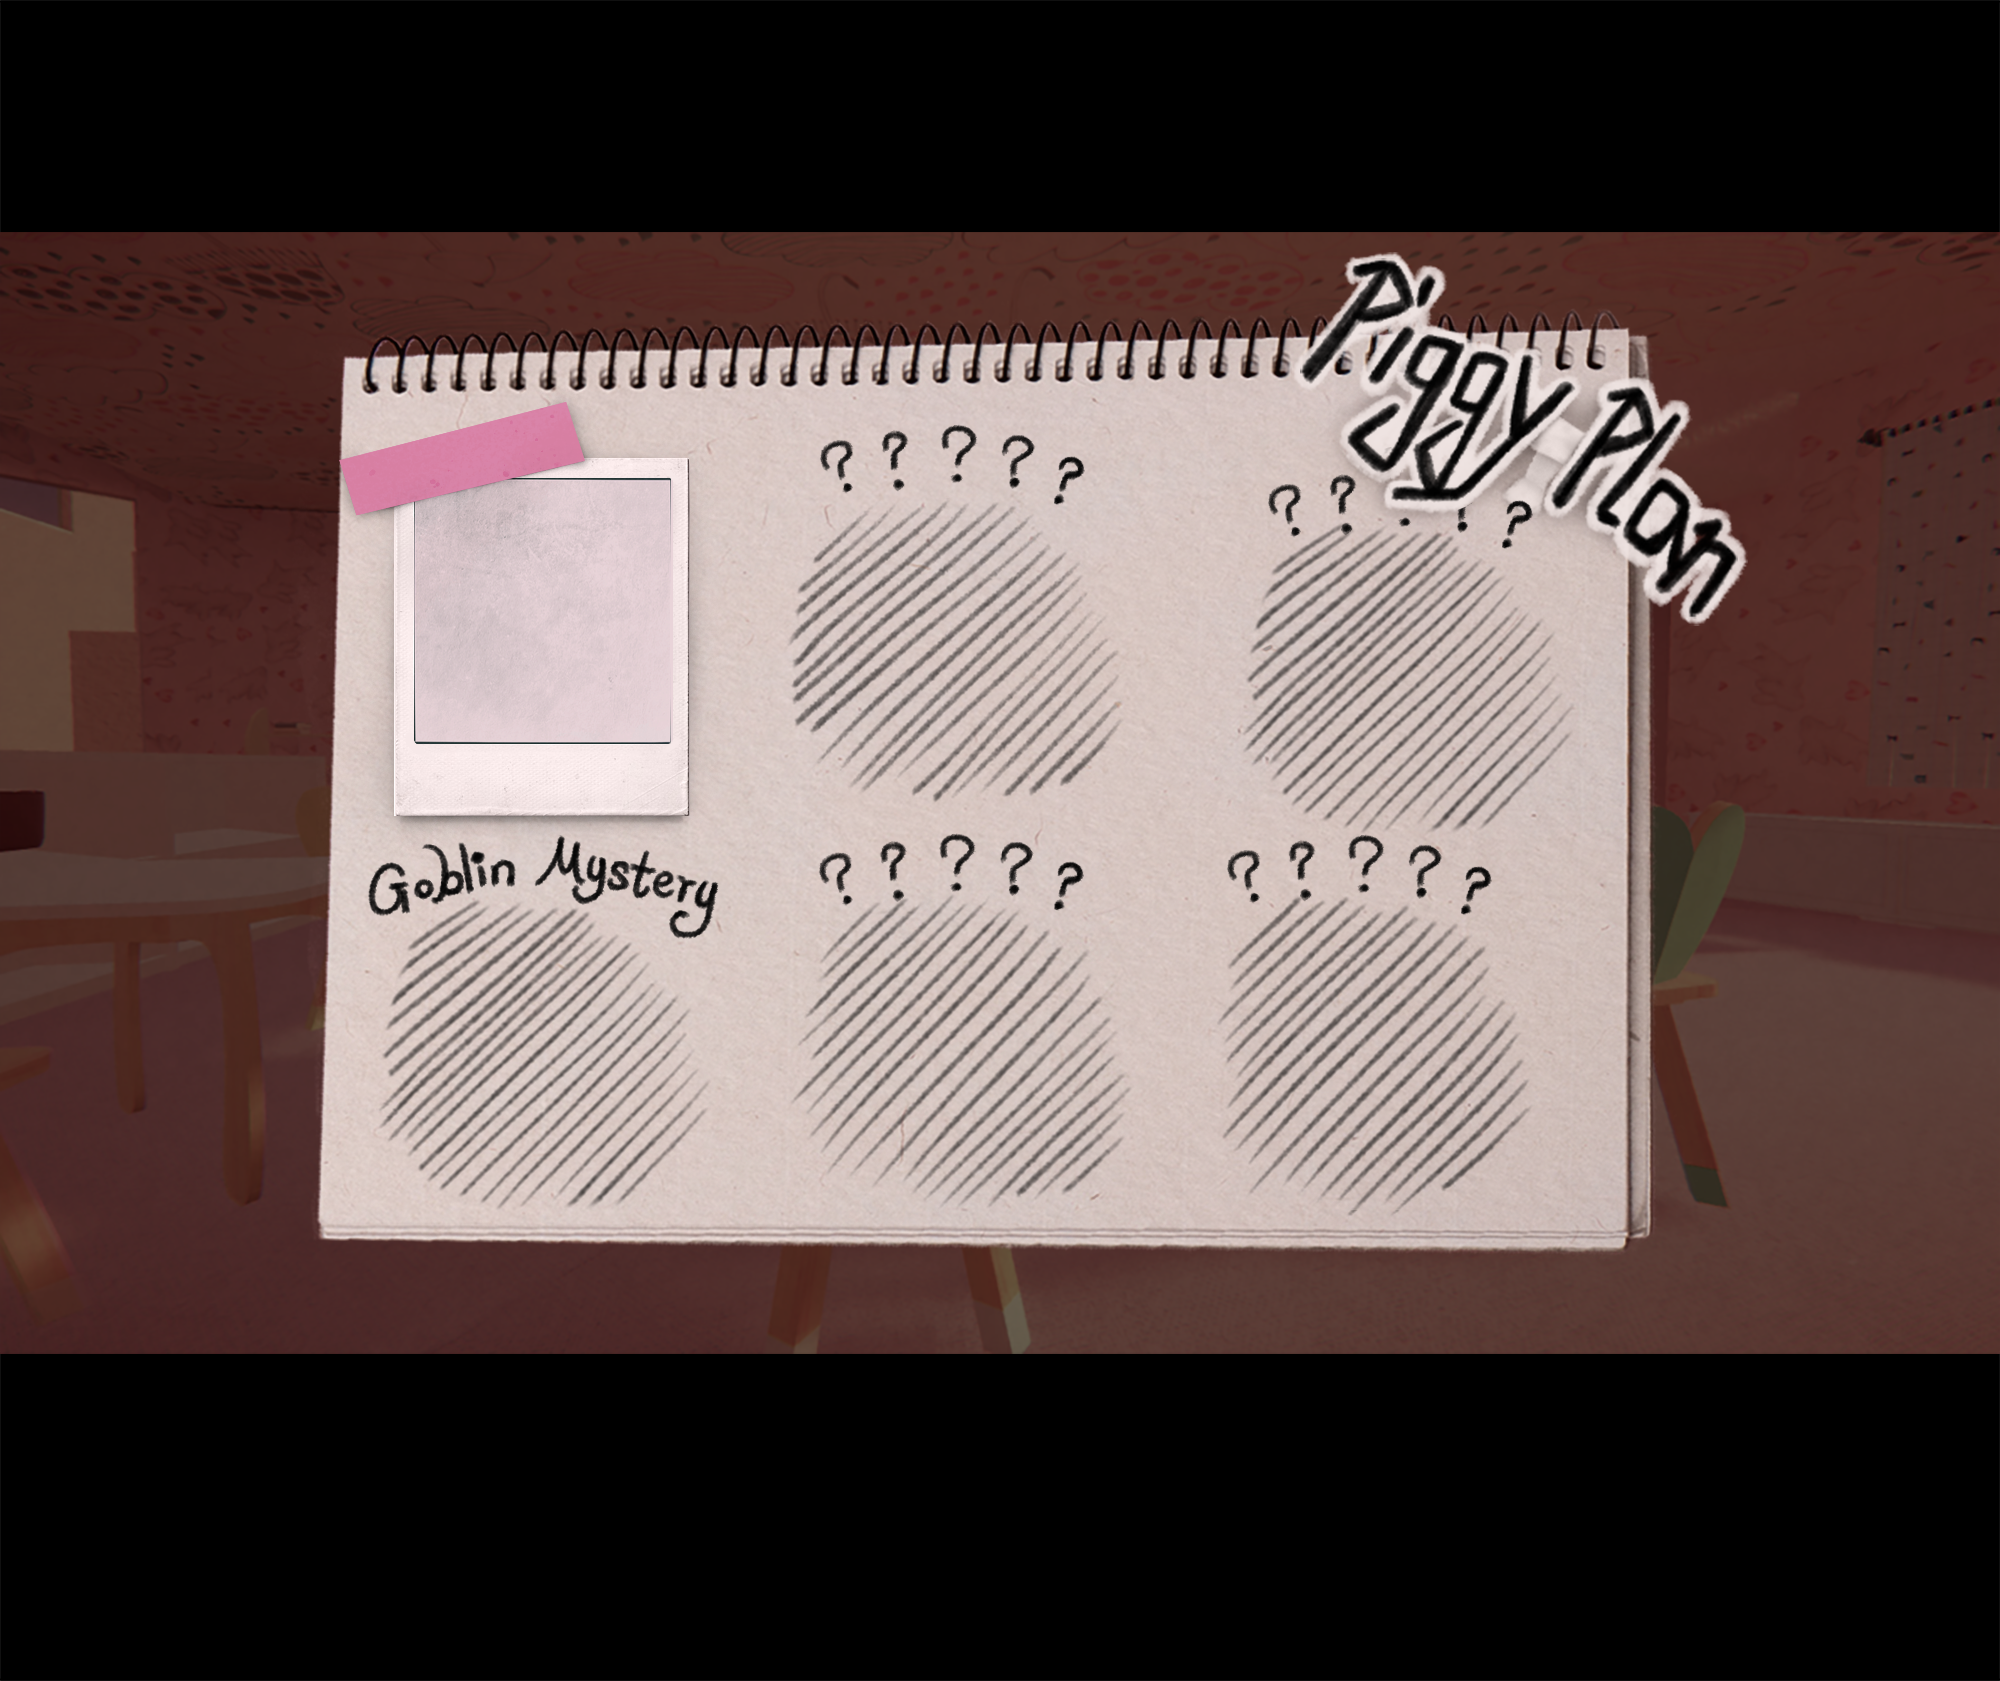 Piggy Plan
? ? ? ? ?
? ? ? ? ?
Goblin Mystery
? ? ? ? ?
? ? ? ? ?